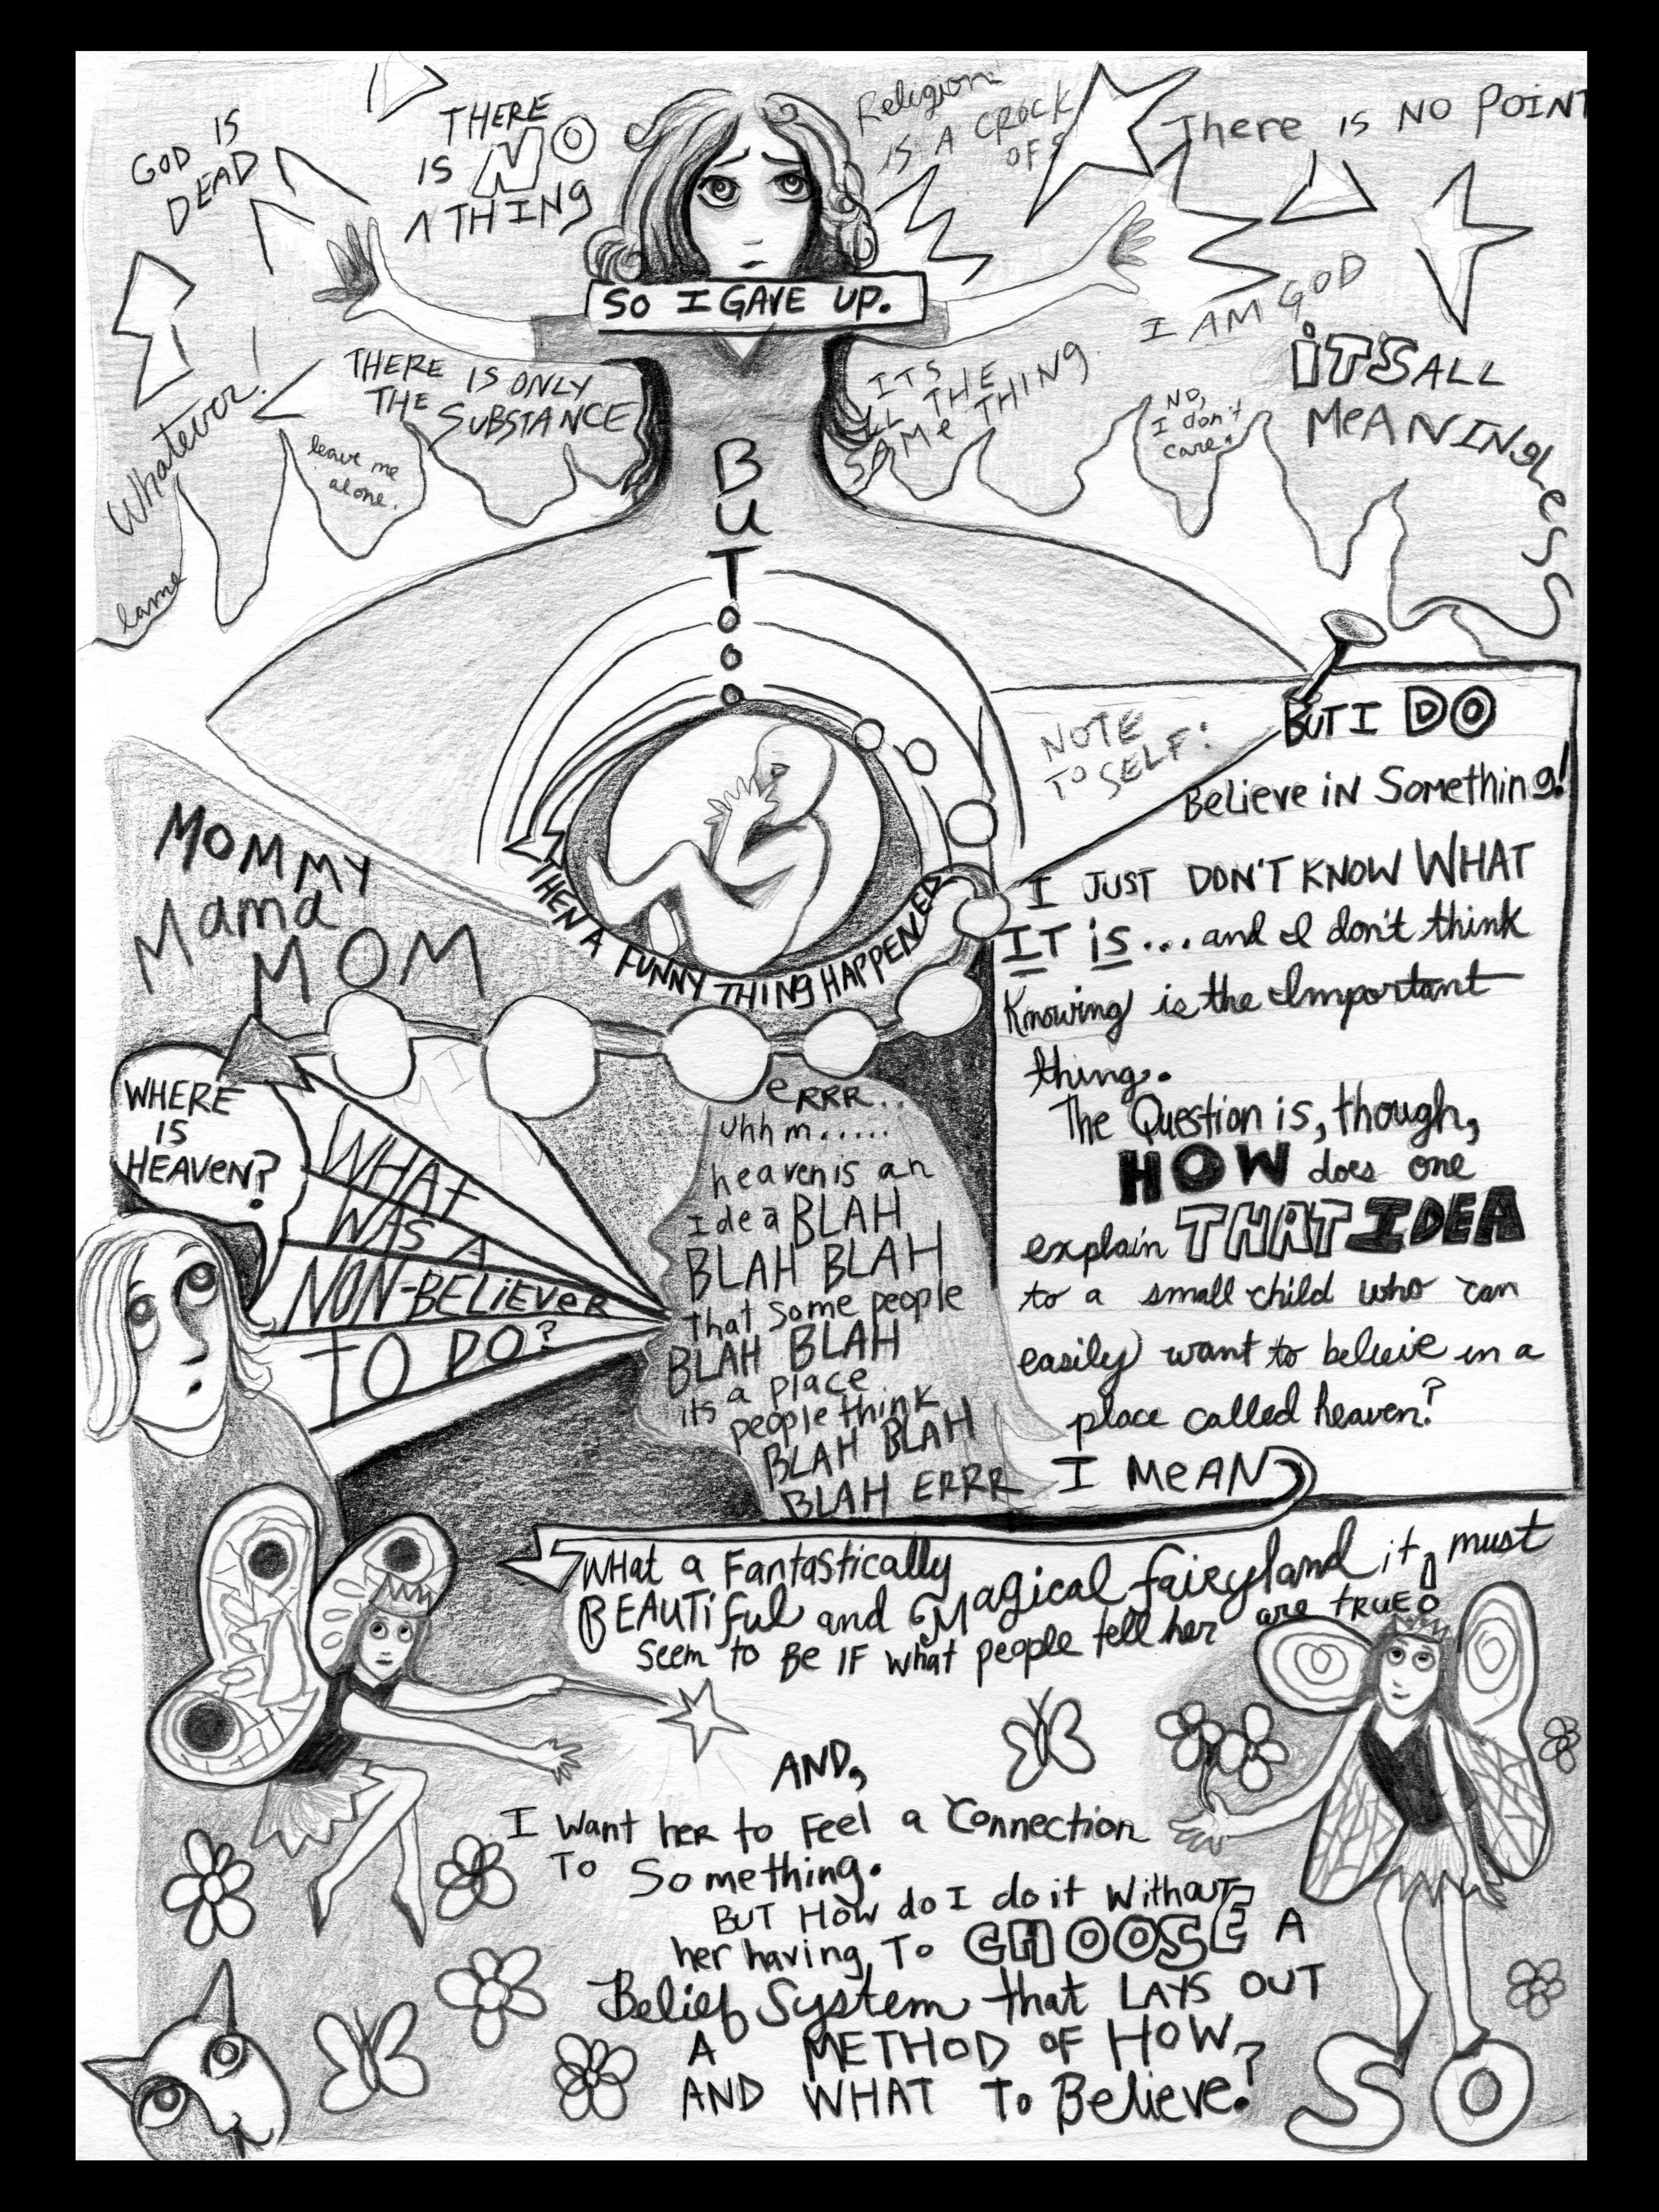 GOD IS
DEAD
THERE
IS NO
1 THING
Religion
IS A CROCK
OF S
There IS NO POINT
SO I GAVE UP.
I AM GOD
Whatever!
THERE IS ONLY
THE SUBSTANCE
leave me
alone.
ITS
ALL THE
SAMe THING.
NO,
I don't
care.
iTS ALL
MeANINgLeSS
lame
BUT...
THEN A FUNNY THINg HAPPENED
NOTE
TO SELF:
BUT I DO
BeLieve iN SOMETHINg!
I JUST DON'T KNOW WHAT
IT is... and I don't think
Knowing is the Important
thing.
The Question is, though,
HOW does one
explain THAT IDEA
to a small child who can
easily want to believe in a
place called heaven?
I MeAN
MOMMY
Mama
MOM
WHERE
IS
HEAVeN?
WHAT
WAS A
NON-BELiEVeR
TO DO?
eRRR..
uhhm.....
heaven is an
Idea BLAH
BLAH BLAH
that some people
BLAH BLAH
its a place
people think
BLAH BLAH
BLAH ERRR
WHat a FantaSticaLLy
BEAUTiful and Magical fairyland it must
Seem to Be IF what people tell her are TRUE!
AND,
I Want heR to Feel a Connection
To Something.
BUT How do I do it Without
her having To CHOOSE A
Belief System that LAYS OUT
A METHOD OF HOW
AND WHAT To Believe?
SO